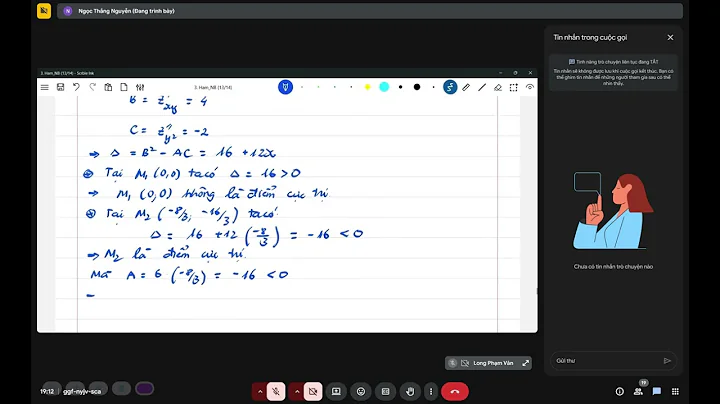 Ngọc Thắng Nguyễn (Đang trình bày)
N
3. Ham_NB (13/14) - Scribble Ink
3. Ham_NB (13/14)
B = z''xy = 4
C = z''y² = -2
⇒ Δ = B² - AC = 16 + 12x
⊕ Tại M₁ (0,0) ta có Δ = 16 > 0
⇒ M₁ (0,0) không là điểm cực trị
⊕ Tại M₂ (-8/3; -16/3) ta có
Δ = 16 + 12 (-8/3) = -16 < 0
⇒ M₂ là điểm cực trị.
Mà A = 6 (-8/3) = -16 < 0
Long Phạm Văn
Tin nhắn trong cuộc gọi
Tính năng trò chuyện liên tục đang TẮT
Tin nhắn sẽ không được lưu khi cuộc gọi kết thúc. Bạn có
thể ghim tin nhắn để những người tham gia sau có thể
nhìn thấy.
Chưa có tin nhắn trò chuyện nào
Gửi thư
19:12 | ggf-nyjv-sca
19